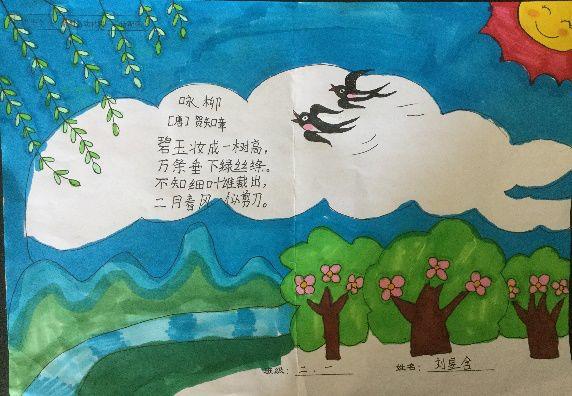 咏柳
[唐] 贺知章
碧玉妆成一树高，
万条垂下绿丝绦。
不知细叶谁裁出，
二月春风似剪刀。
班级：二．一
姓名：刘